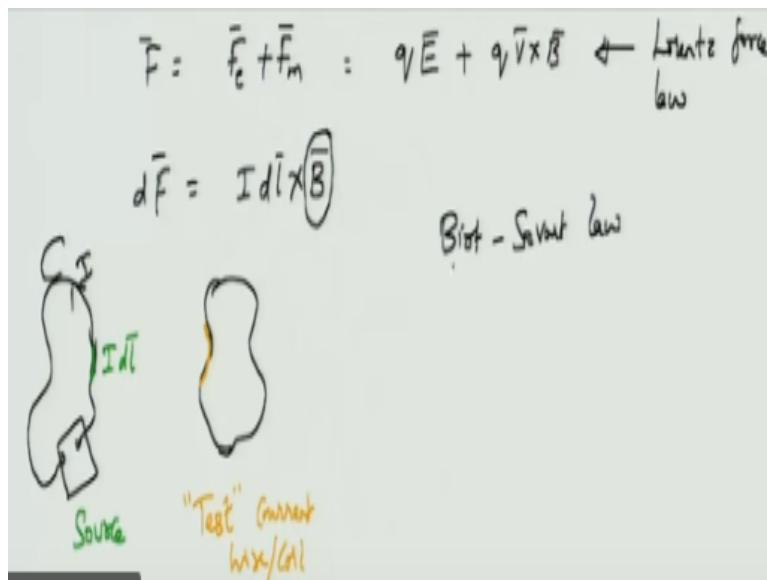 F̄ = F̄e + F̄m = qĒ + qV̄×B̄ ← Lorentz force
law
dF̄ = Idl̄×B̄
Biot - Savart law
C I
Idl̄
Source
"Test" Current
wire/Coil